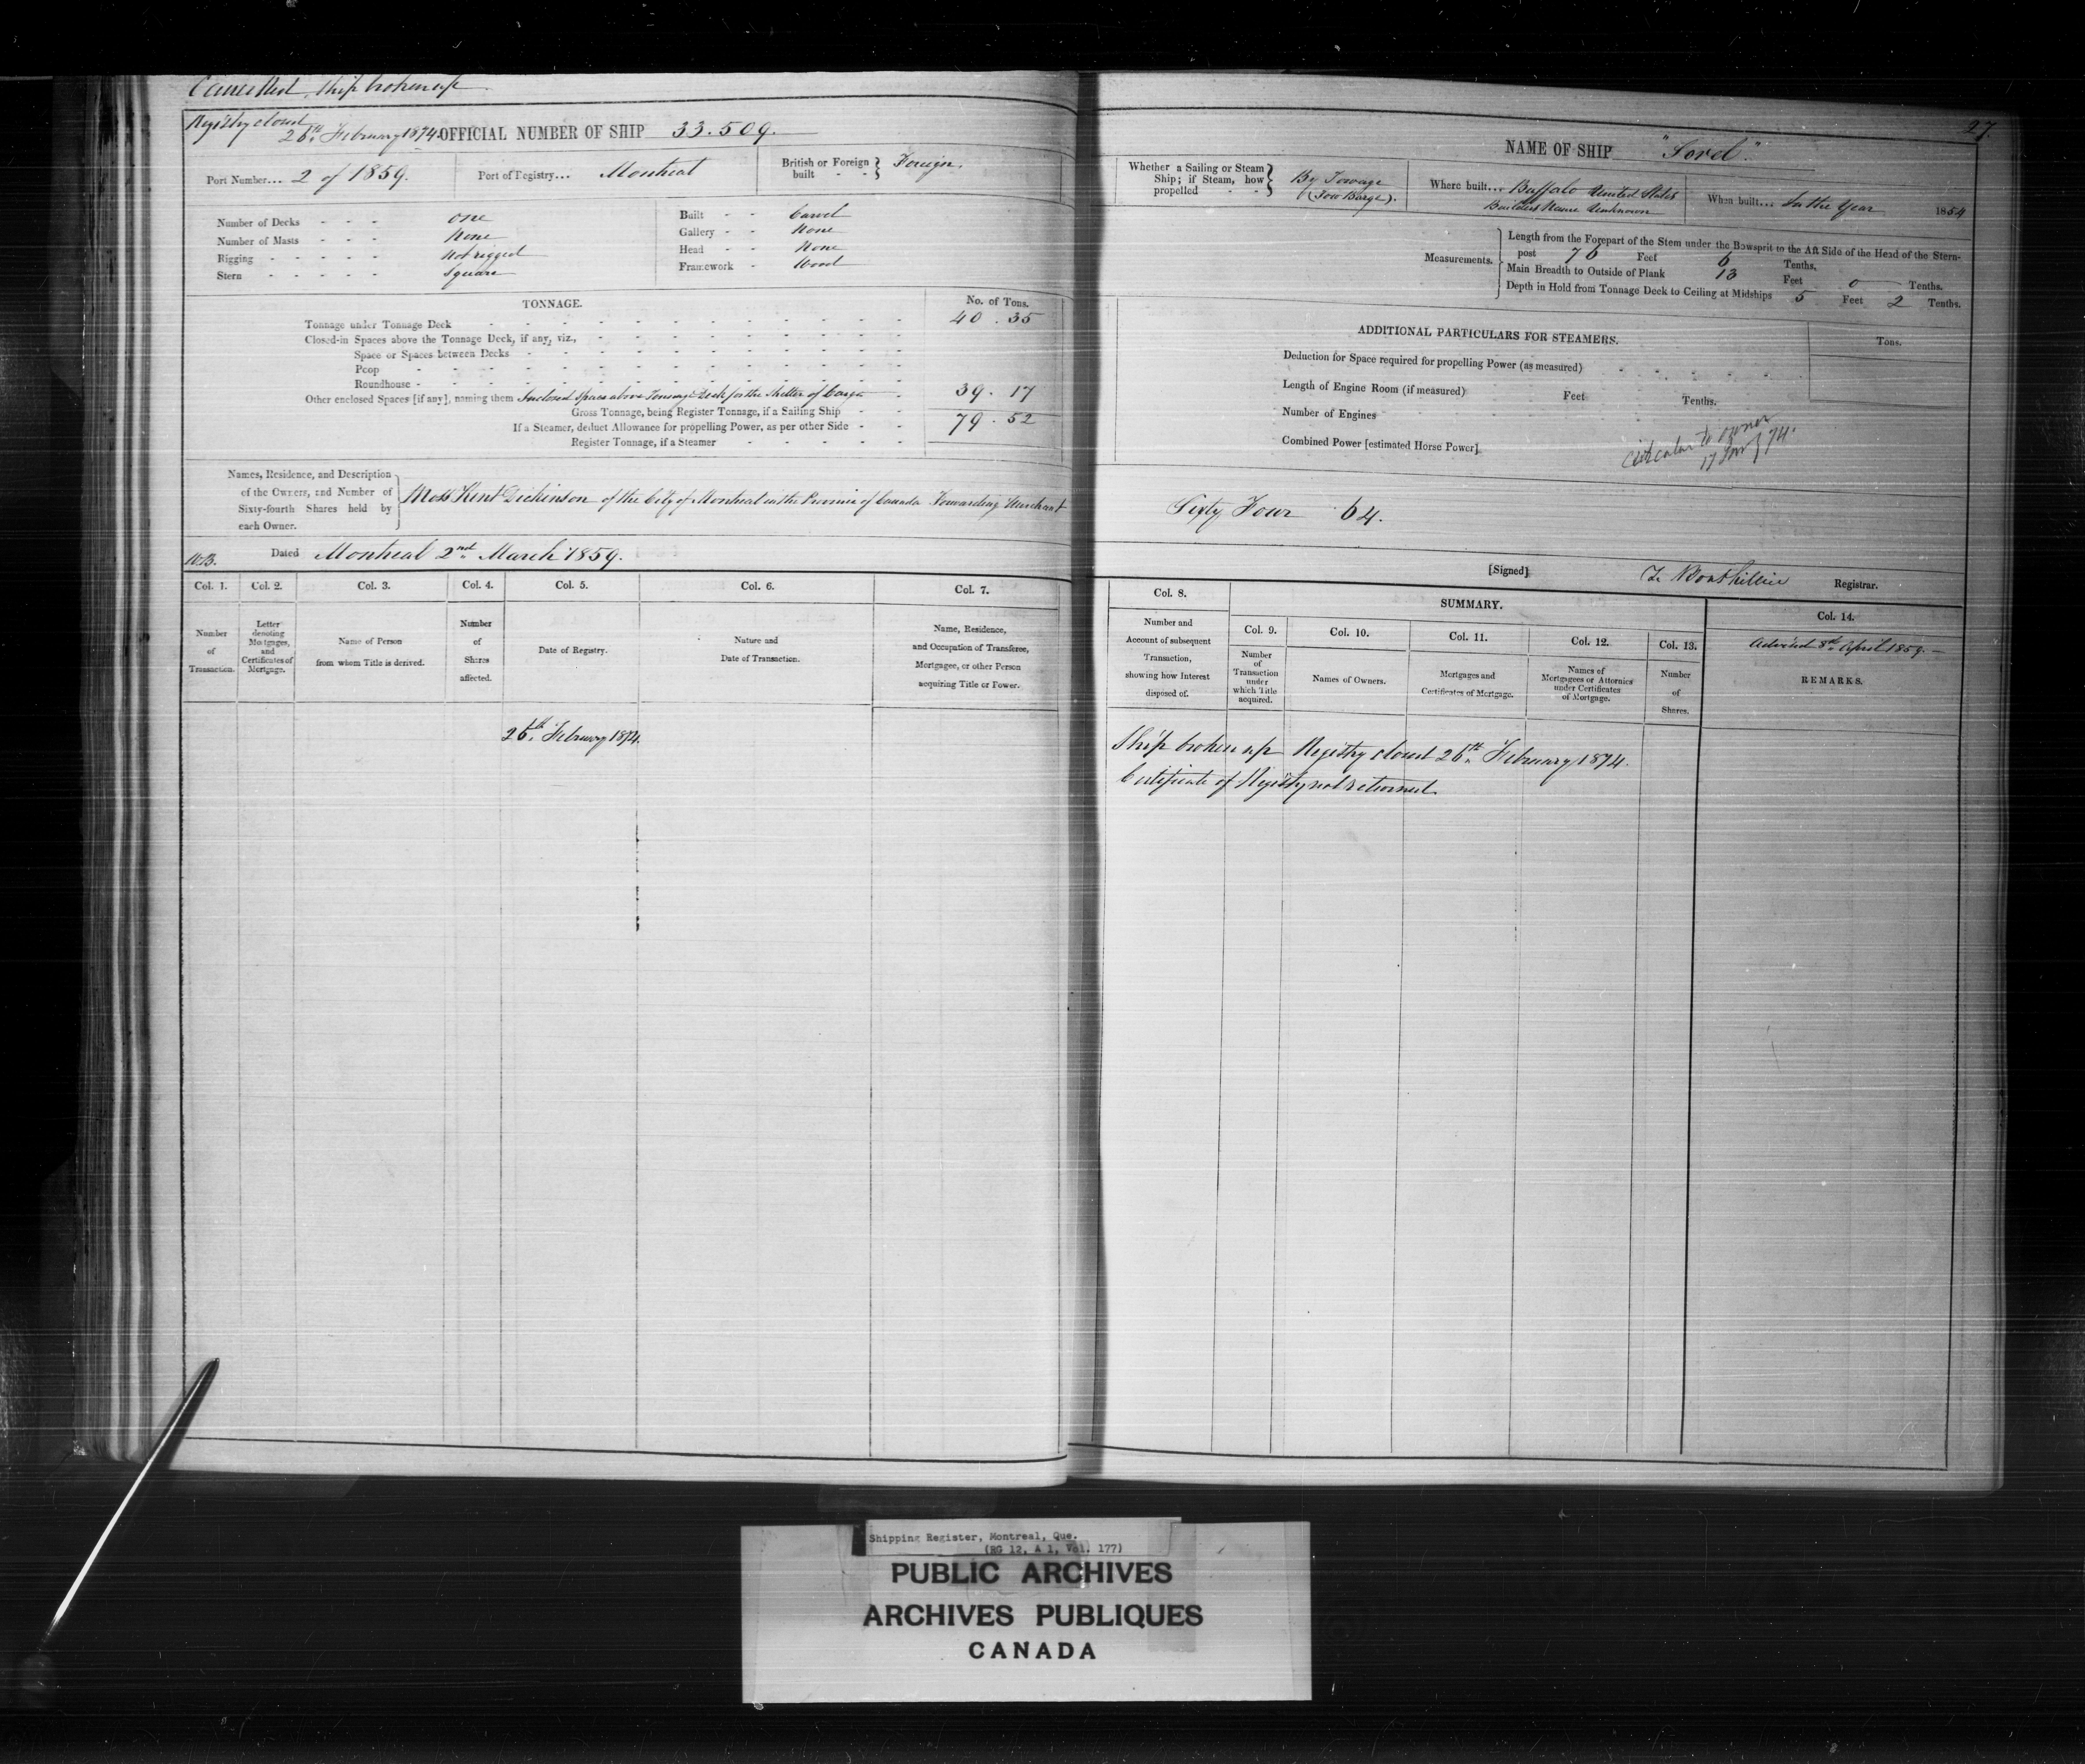 Cancelled. Ship broken up
Registry closed
26th February 1874. OFFICIAL NUMBER OF SHIP 33.509.
Port Number... 2 of 1859. Port of Registry... Montreal British or Foreign built - - } Foreign.
Number of Decks - - - one
Number of Masts - - - None
Rigging - - - - - Not rigged
Stern - - - - - Square
Built - - Carvel
Gallery - - None
Head - - None
Framework - Wood
TONNAGE. No. of Tons.
Tonnage under Tonnage Deck 40.35
Closed-in Spaces above the Tonnage Deck, if any, viz.,
Space or Spaces between Decks
Poop
Roundhouse
Other enclosed Spaces [if any], naming them Inclosed Spaces above Tonnage Deck for the Shelter of Cargo 39.17
Gross Tonnage, being Register Tonnage, if a Sailing Ship 79.52
If a Steamer, deduct Allowance for propelling Power, as per other Side
Register Tonnage, if a Steamer
Names, Residence, and Description
of the Owners, and Number of
Sixty-fourth Shares held by
each Owner.
Moss Kent Dickinson of the City of Montreal in the Province of Canada Forwarding Merchant
W.B. Dated Montreal 2nd March 1859.
Col. 1. Col. 2. Col. 3. Col. 4. Col. 5. Col. 6. Col. 7.
Number of Transaction.
Letter denoting Mortgages, and Certificates of Mortgage.
Name of Person from whom Title is derived.
Number of Shares affected.
Date of Registry.
Nature and Date of Transaction.
Name, Residence, and Occupation of Transferee, Mortgagee, or other Person acquiring Title or Power.
26th February 1874.
27
NAME OF SHIP "Sorel."
Whether a Sailing or Steam Ship; if Steam, how propelled - - } By Towage
(Tow Barge).
Where built... Buffalo United States
Builders Name Unknown
When built... In the Year 1854
Measurements.
Length from the Forepart of the Stem under the Bowsprit to the Aft Side of the Head of the Stern-
post 76 Feet 6 Tenths.
Main Breadth to Outside of Plank 13 Feet 0 Tenths.
Depth in Hold from Tonnage Deck to Ceiling at Midships 5 Feet 2 Tenths.
ADDITIONAL PARTICULARS FOR STEAMERS. Tons.
Deduction for Space required for propelling Power (as measured)
Length of Engine Room (if measured) Feet Tenths.
Number of Engines
Combined Power [estimated Horse Power]
Circular to owner
17 Jany 74.
Sixty Four 64.
[Signed] Registrar.
Col. 8. SUMMARY. Col. 14.
Col. 9. Col. 10. Col. 11. Col. 12. Col. 13.
Number and Account of subsequent Transaction, showing how Interest disposed of.
Number of Transaction under which Title acquired.
Names of Owners.
Mortgages and Certificates of Mortgage.
Names of Mortgagees or Attornies under Certificates of Mortgage.
Number of Shares.
Advised 8th April 1859.
REMARKS.
Ship broken up Registry closed 26th February 1874.
Certificate of Registry not returned.
Shipping Register, Montreal, Que.
(RG 12, A 1, Vol. 177)
PUBLIC ARCHIVES
ARCHIVES PUBLIQUES
CANADA